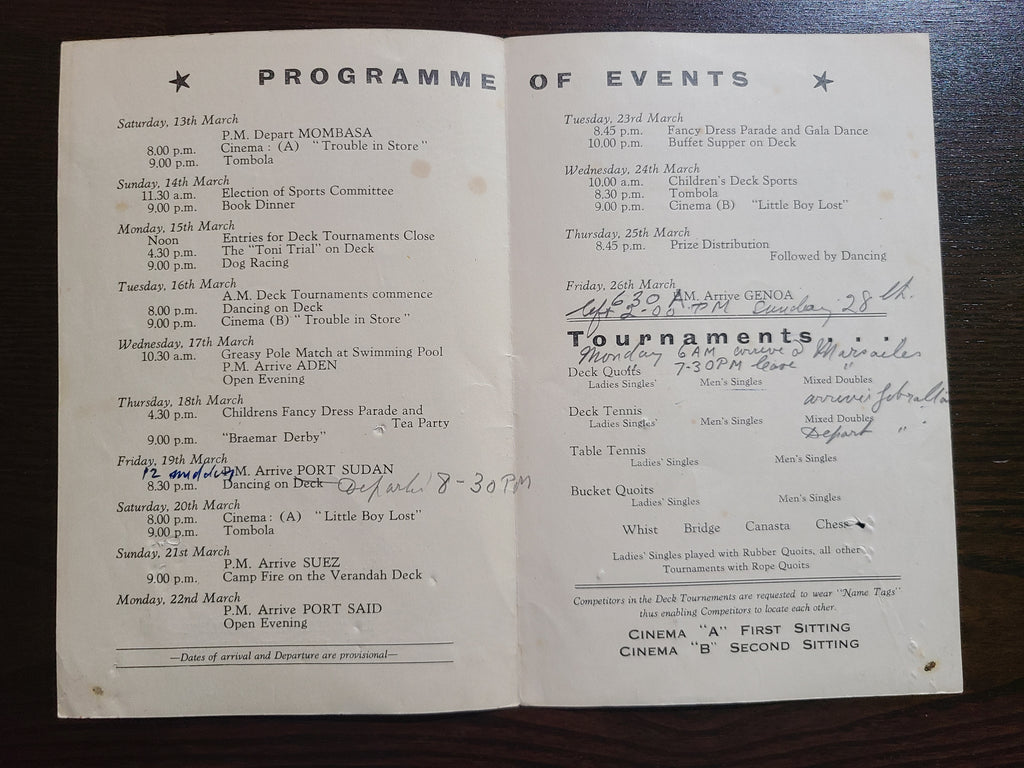 PROGRAMME OF EVENTS
Saturday, 13th March
P.M. Depart MOMBASA
8.00 p.m. Cinema : (A) "Trouble in Store"
9.00 p.m. Tombola
Sunday, 14th March
11.30 a.m. Election of Sports Committee
9.00 p.m. Book Dinner
Monday, 15th March
Noon Entries for Deck Tournaments Close
4.30 p.m. The "Toni Trial" on Deck
9.00 p.m. Dog Racing
Tuesday, 16th March
A.M. Deck Tournaments commence
8.00 p.m. Dancing on Deck
9.00 p.m. Cinema (B) "Trouble in Store"
Wednesday, 17th March
10.30 a.m. Greasy Pole Match at Swimming Pool
P.M. Arrive ADEN
Open Evening
Thursday, 18th March
4.30 p.m. Childrens Fancy Dress Parade and
Tea Party
9.00 p.m. "Braemar Derby"
Friday, 19th March
12 midday P.M. Arrive PORT SUDAN
8.30 p.m. Dancing on Deck Departs 8-30 PM
Saturday, 20th March
8.00 p.m. Cinema : (A) "Little Boy Lost"
9.00 p.m. Tombola
Sunday, 21st March
P.M. Arrive SUEZ
9.00 p.m. Camp Fire on the Verandah Deck
Monday, 22nd March
P.M. Arrive PORT SAID
Open Evening
—Dates of arrival and Departure are provisional—
Tuesday, 23rd March
8.45 p.m. Fancy Dress Parade and Gala Dance
10.00 p.m. Buffet Supper on Deck
Wednesday, 24th March
10.00 a.m. Children's Deck Sports
8.30 p.m. Tombola
9.00 p.m. Cinema (B) "Little Boy Lost"
Thursday, 25th March
8.45 p.m. Prize Distribution
Followed by Dancing
Friday, 26th March
6 30 A.M. Arrive GENOA
left 2-00 PM Sunday 28th.
Tournaments . . .
Monday 6 AM arrive Marsailes
Deck Quoits 7-30 PM leave "
Ladies Singles' Men's Singles Mixed Doubles
arrives Gibralta
Deck Tennis
Ladies Singles' Men's Singles Mixed Doubles
Depart "
Table Tennis
Ladies' Singles Men's Singles
Bucket Quoits
Ladies' Singles Men's Singles
Whist Bridge Canasta Chess
Ladies' Singles played with Rubber Quoits, all other
Tournaments with Rope Quoits
Competitors in the Deck Tournements are requested to wear "Name Tags"
thus enabling Competitors to locate each other.
CINEMA "A" FIRST SITTING
CINEMA "B" SECOND SITTING